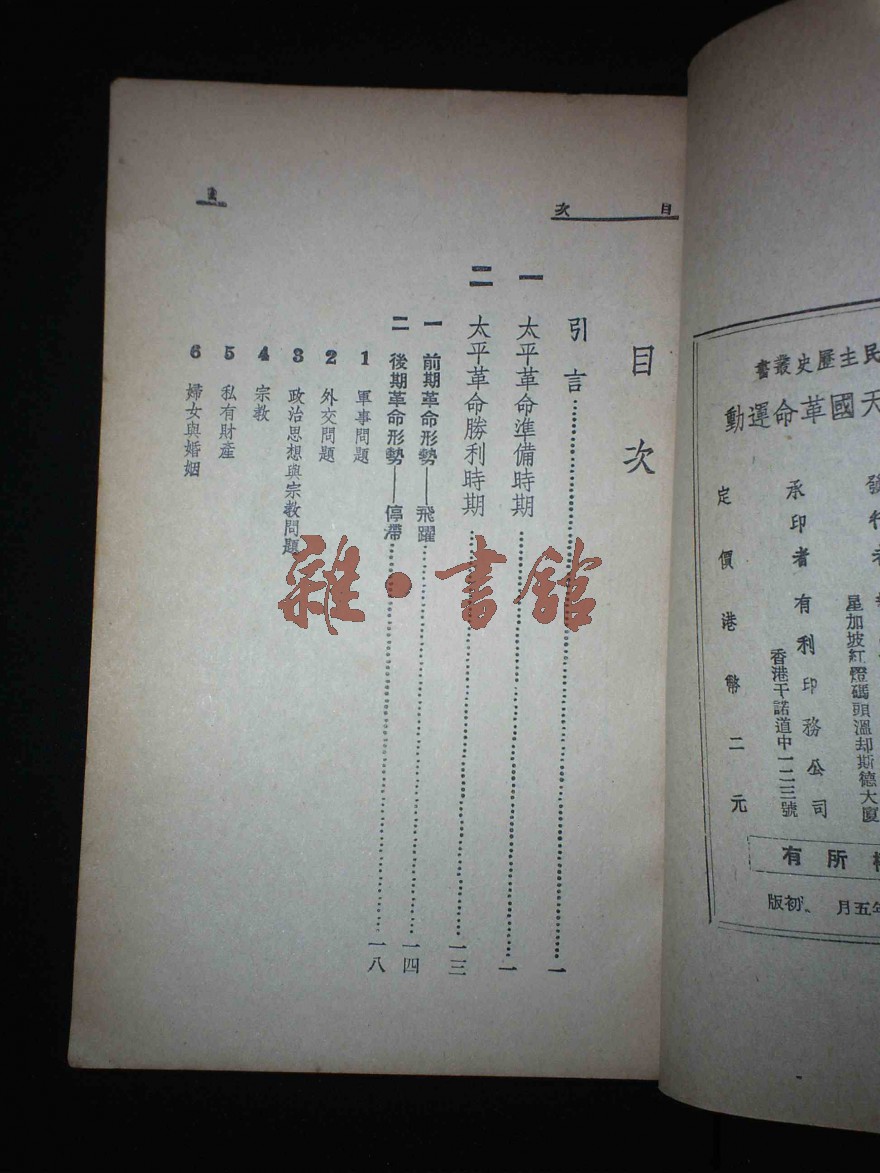 民主歷史叢書
天國革命運動
星加坡紅燈碼頭溫却斯德大廈
承印者有利印務公司
香港干諾道中一二三號
定價港幣二元
所有
年五月 初版
目次
目次
引言…………一
一 太平革命準備時期…………一
二 太平革命勝利時期…………一三
一 前期革命形勢——飛躍…………一四
二 後期革命形勢——停滯…………一八
1 軍事問題
2 外交問題
3 政治思想與宗教問題
4 宗教
5 私有財產
6 婦女與婚姻
雜·書館